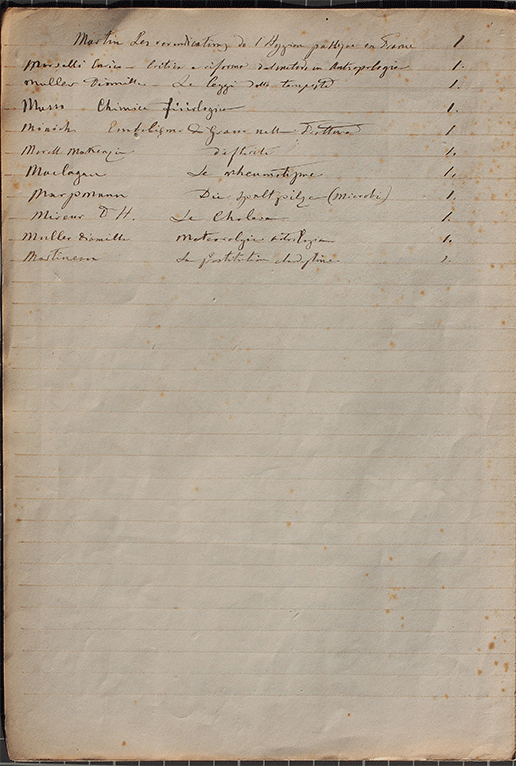 Martin Les revendications de l'Hygiene publique en France 1
Morselli Enrico - Critica e riforma del metodo in Antropologia 1.
Muller Diamilla - Le leggi delle tempeste 1.
Musso Chimica fisiologica 1.
Grani nella 1
Morell Makenzie difterite 1.
Maclagan Le rheumatisme 1.
Marpmann Die Spaltpilze (Microbi) 1.
Mireur D H. Le Cholera 1.
Muller diamilla Meteorologia 1.
Martineau La prostitution clandestine 1.